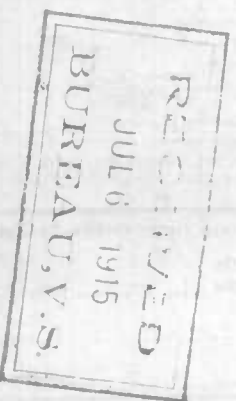 RECEIVED
JUL 6 1915
BUREAU, V.S.